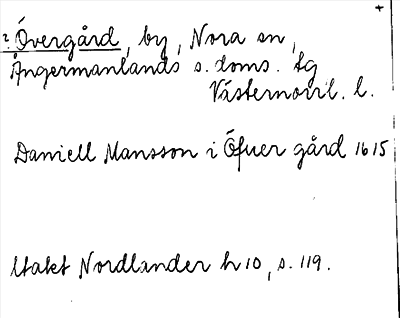 +
? Övergård, by, Nora sn,
Ångermanlands s. doms. tg
Västernorrl. l.
Daniell Mansson i Öfuer gård 1615
Utakt Nordlander h 10, s. 119.